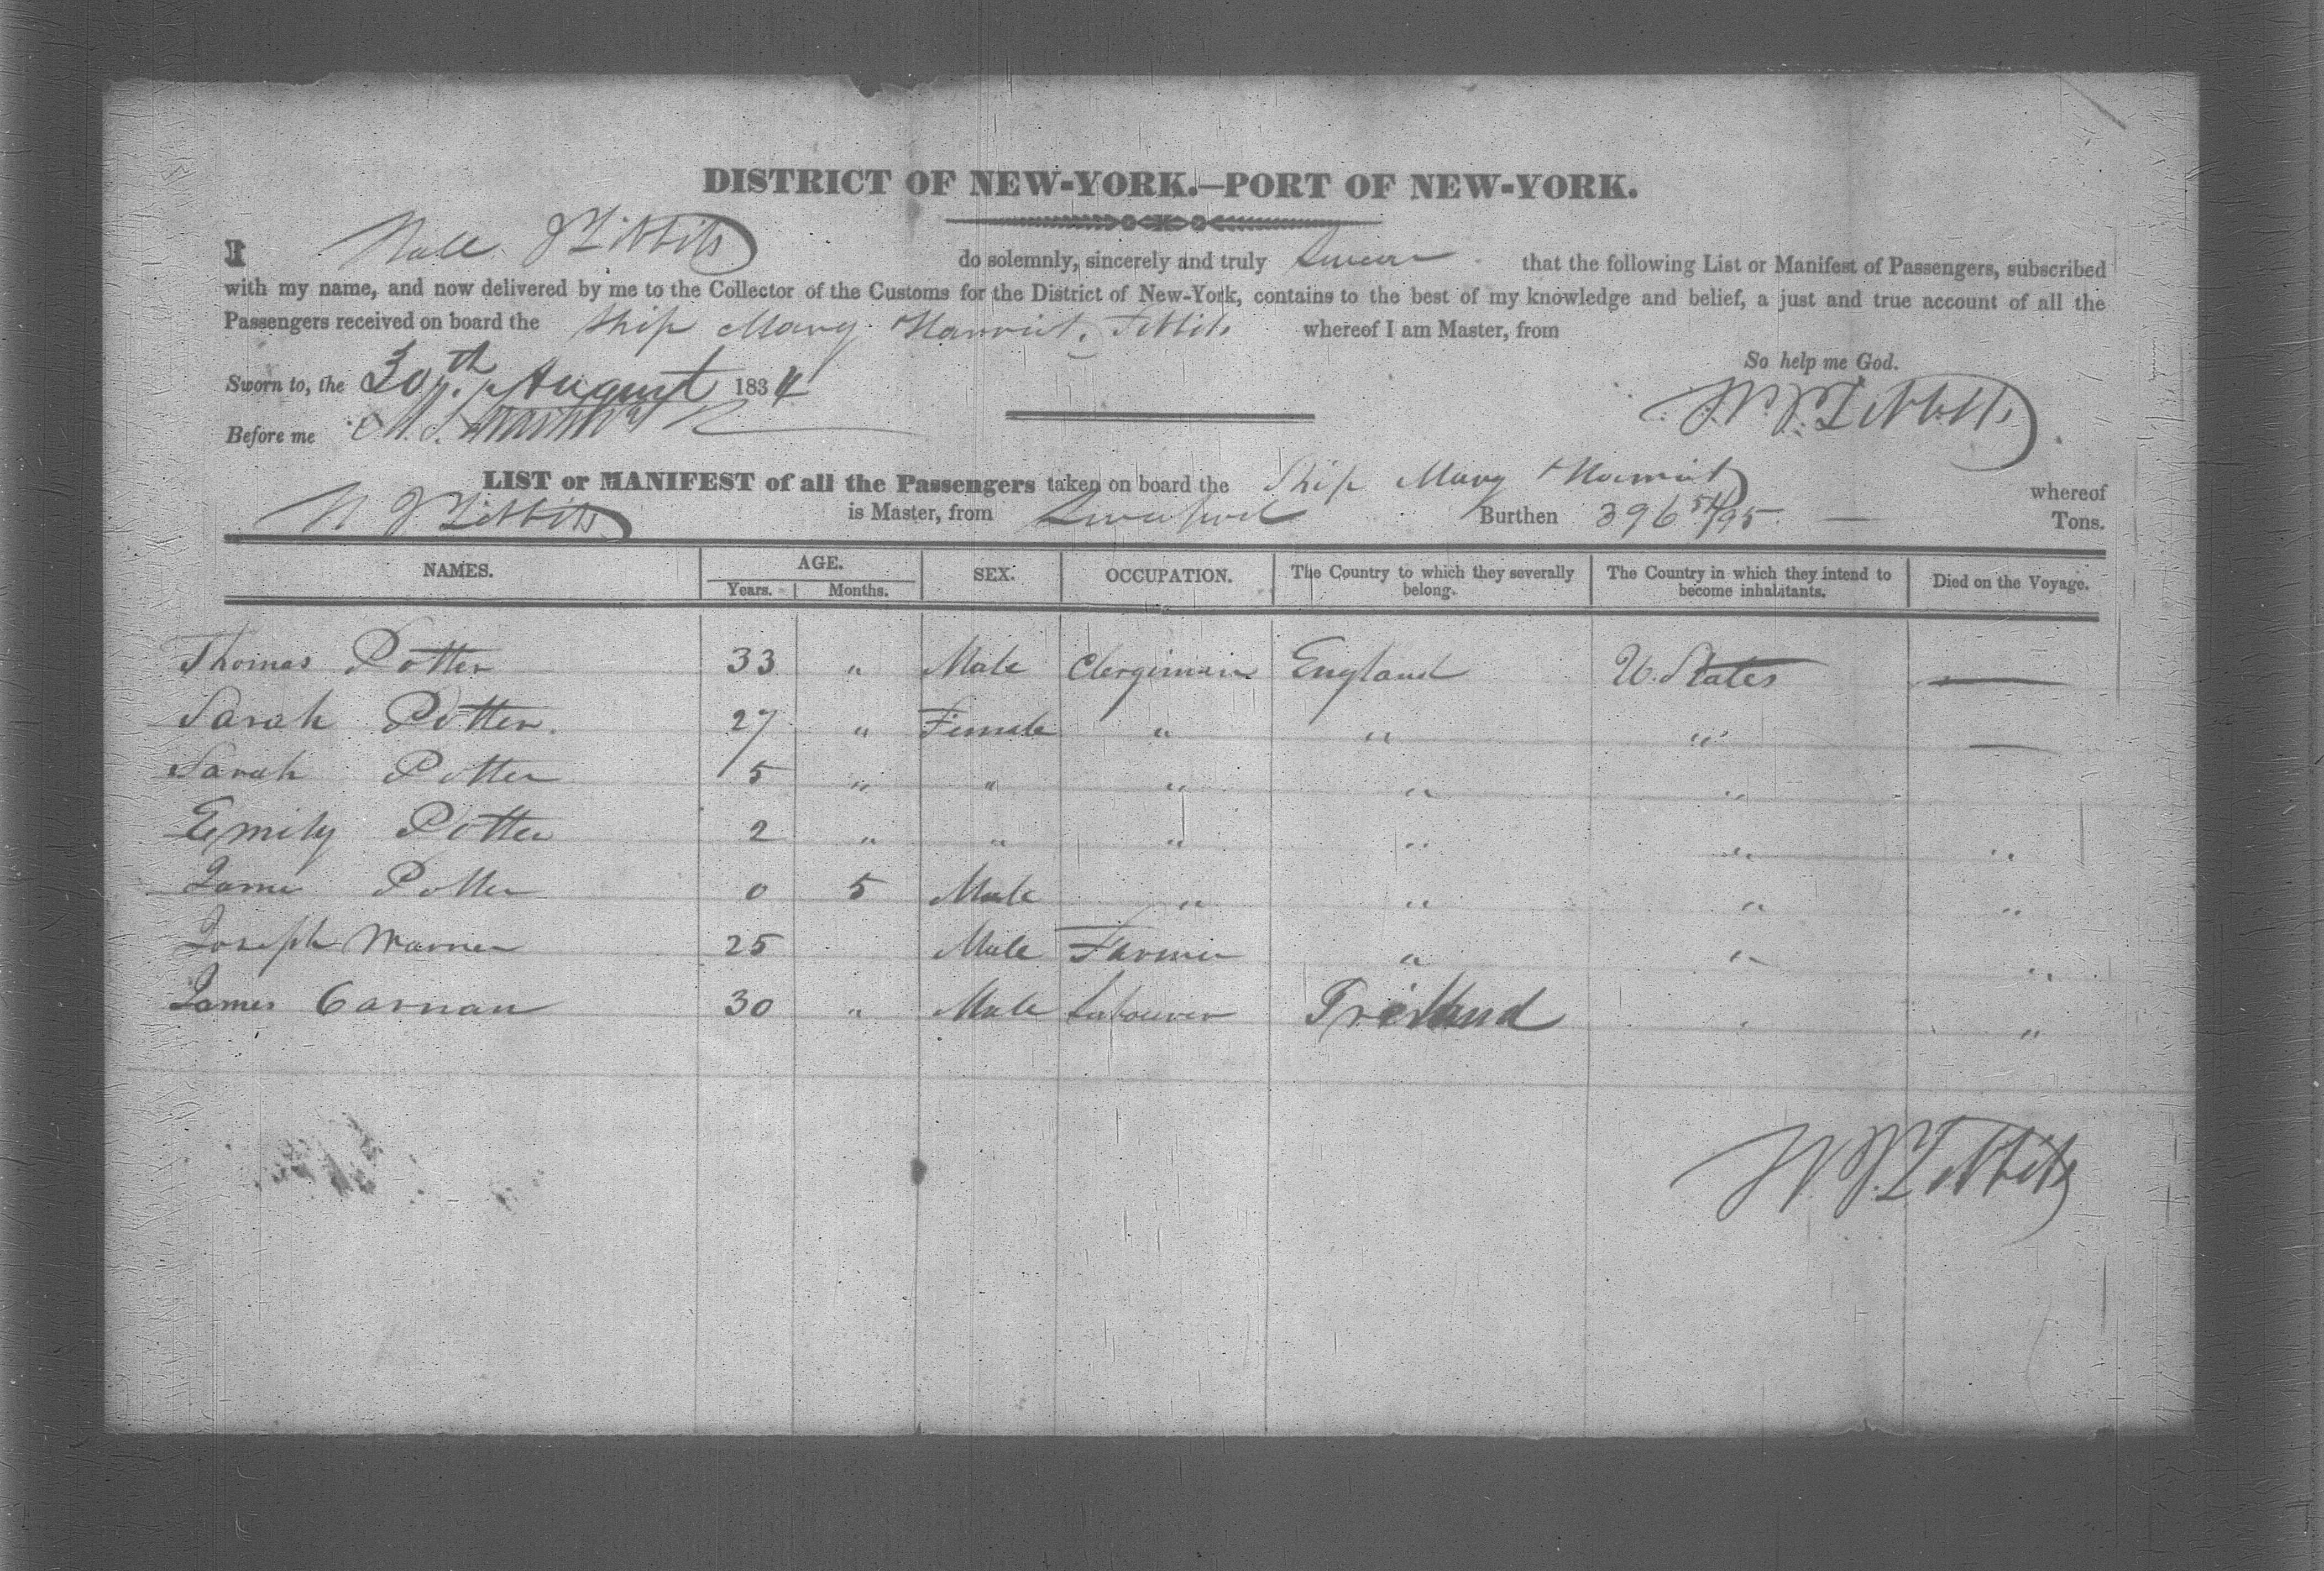 DISTRICT OF NEW-YORK.—PORT OF NEW-YORK.
I do solemnly, sincerely and truly Swear that the following List or Manifest of Passengers, subscribed
with my name, and now delivered by me to the Collector of the Customs for the District of New-York, contains to the best of my knowledge and belief, a just and true account of all the
Passengers received on board the Ship Mary & Harriet, Tibbits whereof I am Master, from
So help me God.
Sworn to, the 30th August 1834
Before me
LIST or MANIFEST of all the Passengers taken on board the Ship Mary & Harriet whereof
Tibbits is Master, from Liverpool Burthen 396 54/95 Tons.
NAMES. AGE. SEX. OCCUPATION. The Country to which they severally belong. The Country in which they intend to become inhabitants. Died on the Voyage.
Years. Months.
Thomas Potter 33 " Male Clergiman England U. States —
Sarah Potter. 27 " Female " " " —
Sarah Potter 5 " " " " "
Emily Potter 2 " " " " " "
Potter 0 5 Male " " " "
Joseph Warner 25 Male Farmer " " "
James Carnan 30 " Male Labourer Ireland " "
Tibbits